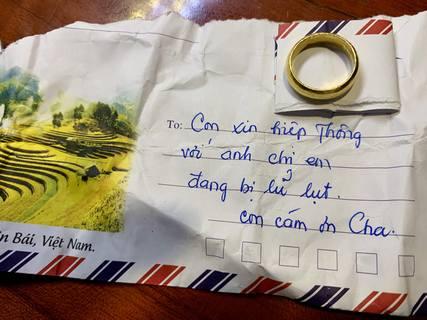 To: Con xin hiệp thông
với anh chị em
đang bị lũ lụt.
con cám ơn Cha.
n Bái, Việt Nam.